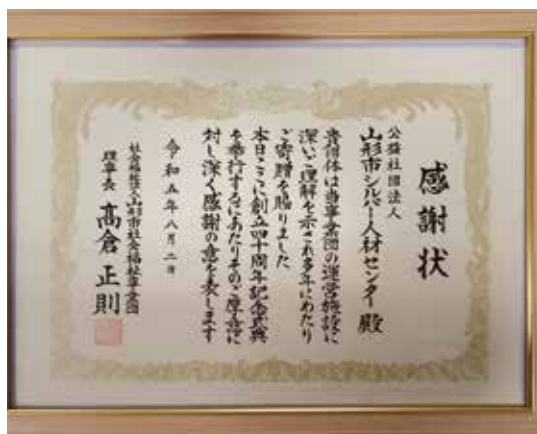 感謝状
公益社団法人
山形市シルバー人材センター 殿
貴団体は当事業団の運営施設に
深いご理解を示され多年にわたり
ご寄贈を賜りました
本日ここに創立四十周年記念式典
を挙行するにあたりそのご厚志に
対し深く感謝の意を表します
令和五年八月二日
社会福祉法人山形市社会福祉事業団
理事長 髙倉正則